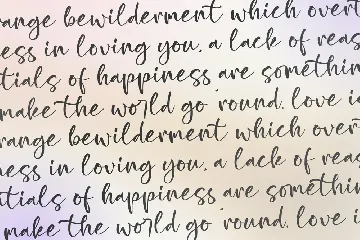 range bewilderment which overt
ess in loving you. a lack of reas
tials of happiness are somethin
make the world go 'round. love i
range bewilderment which overt
ness in loving you. a lack of rea
tials of happiness are somethi
make the world go 'round. love i